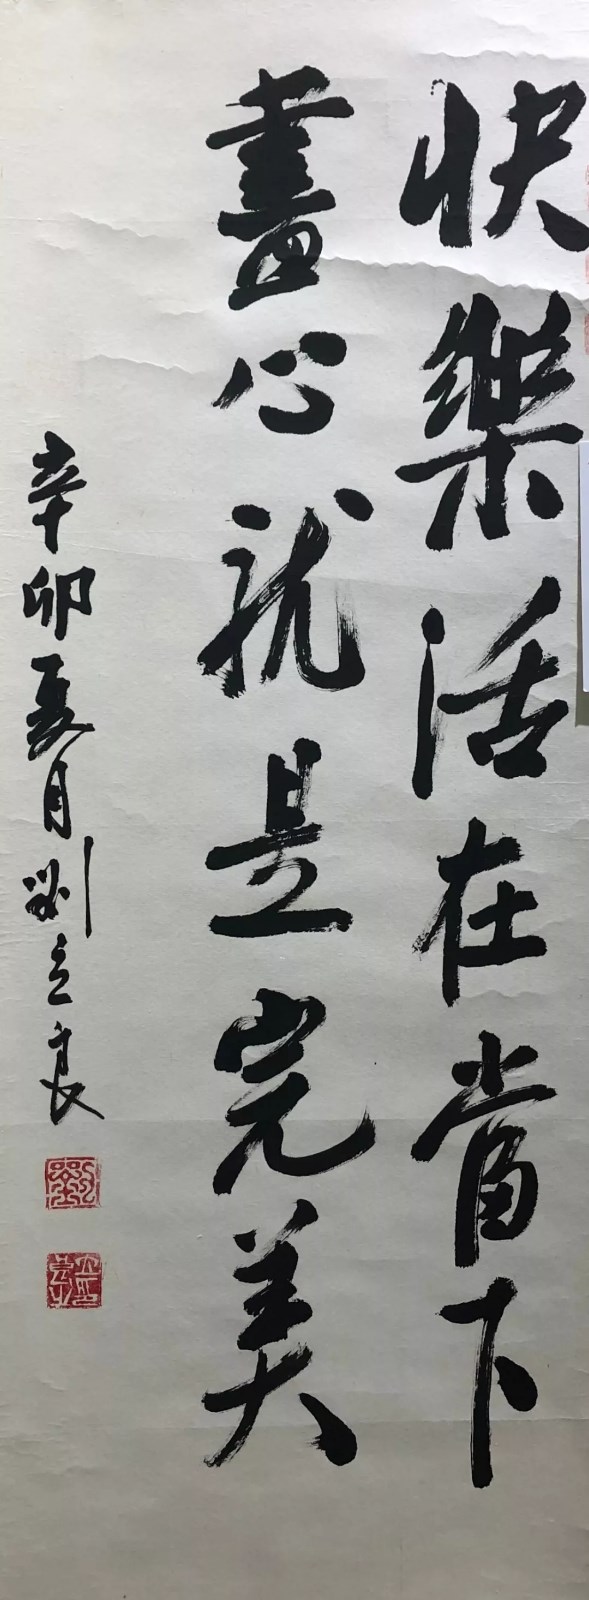 快樂活在當下
盡心就是完美
辛卯夏月劉立良